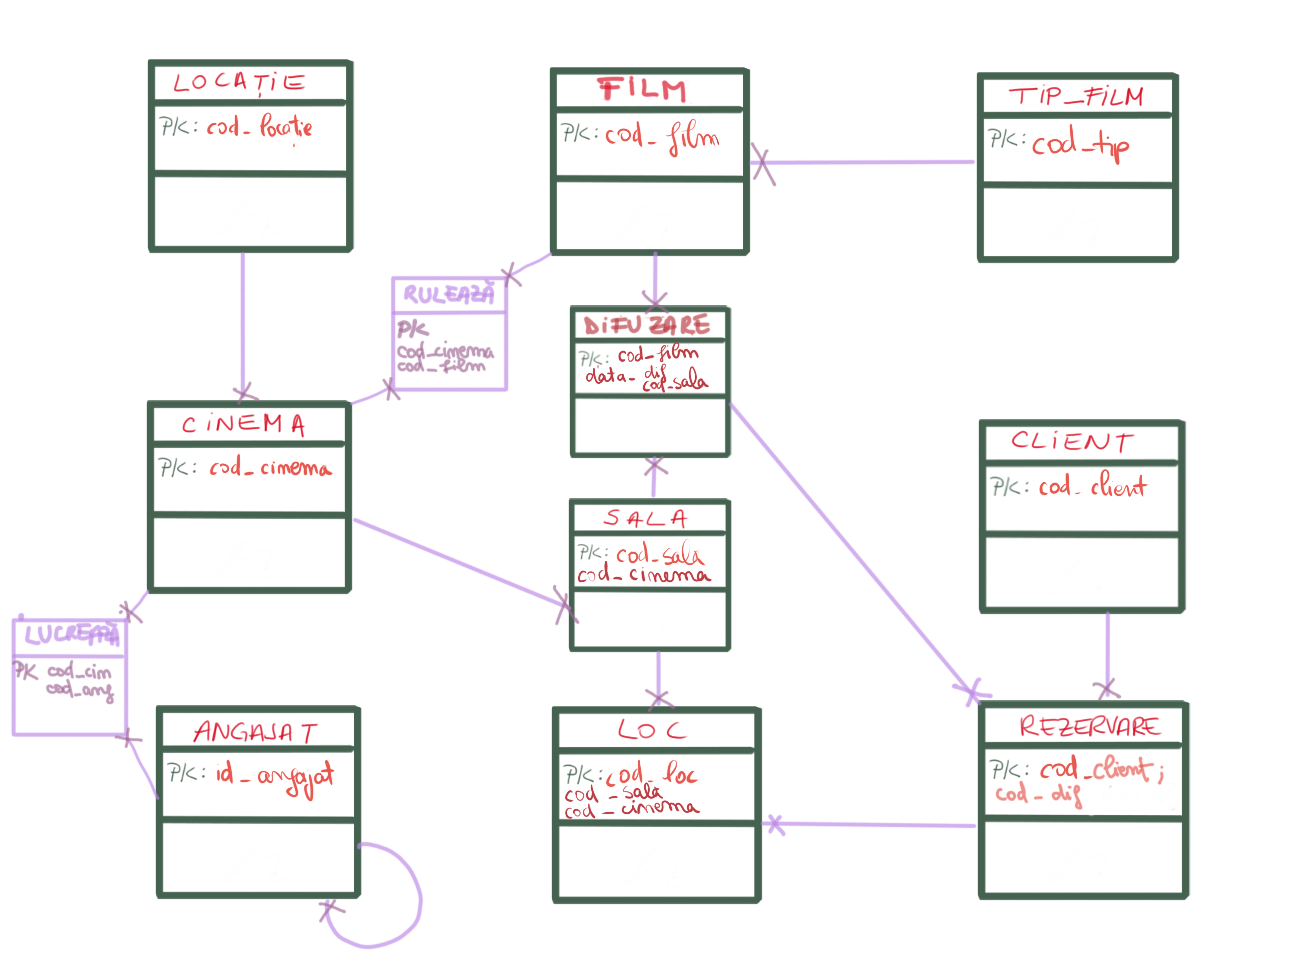 LOCAȚIE
PK: cod_locatie
FILM
PK: cod_film
TIP_FILM
PK: cod_tip
RULEAZĂ
PK
cod_cinema
cod_film
DIFUZARE
PK: cod_film
data_dif
cod_sala
CINEMA
PK: cod_cinema
CLIENT
PK: cod_client
SALA
PK: cod_sala
cod_cinema
LUCREAZĂ
PK cod_cim
cod_ang
ANGAJAT
PK: id_angajat
LOC
PK: cod_loc
cod_sala
cod_cinema
REZERVARE
PK: cod_client;
cod_dif